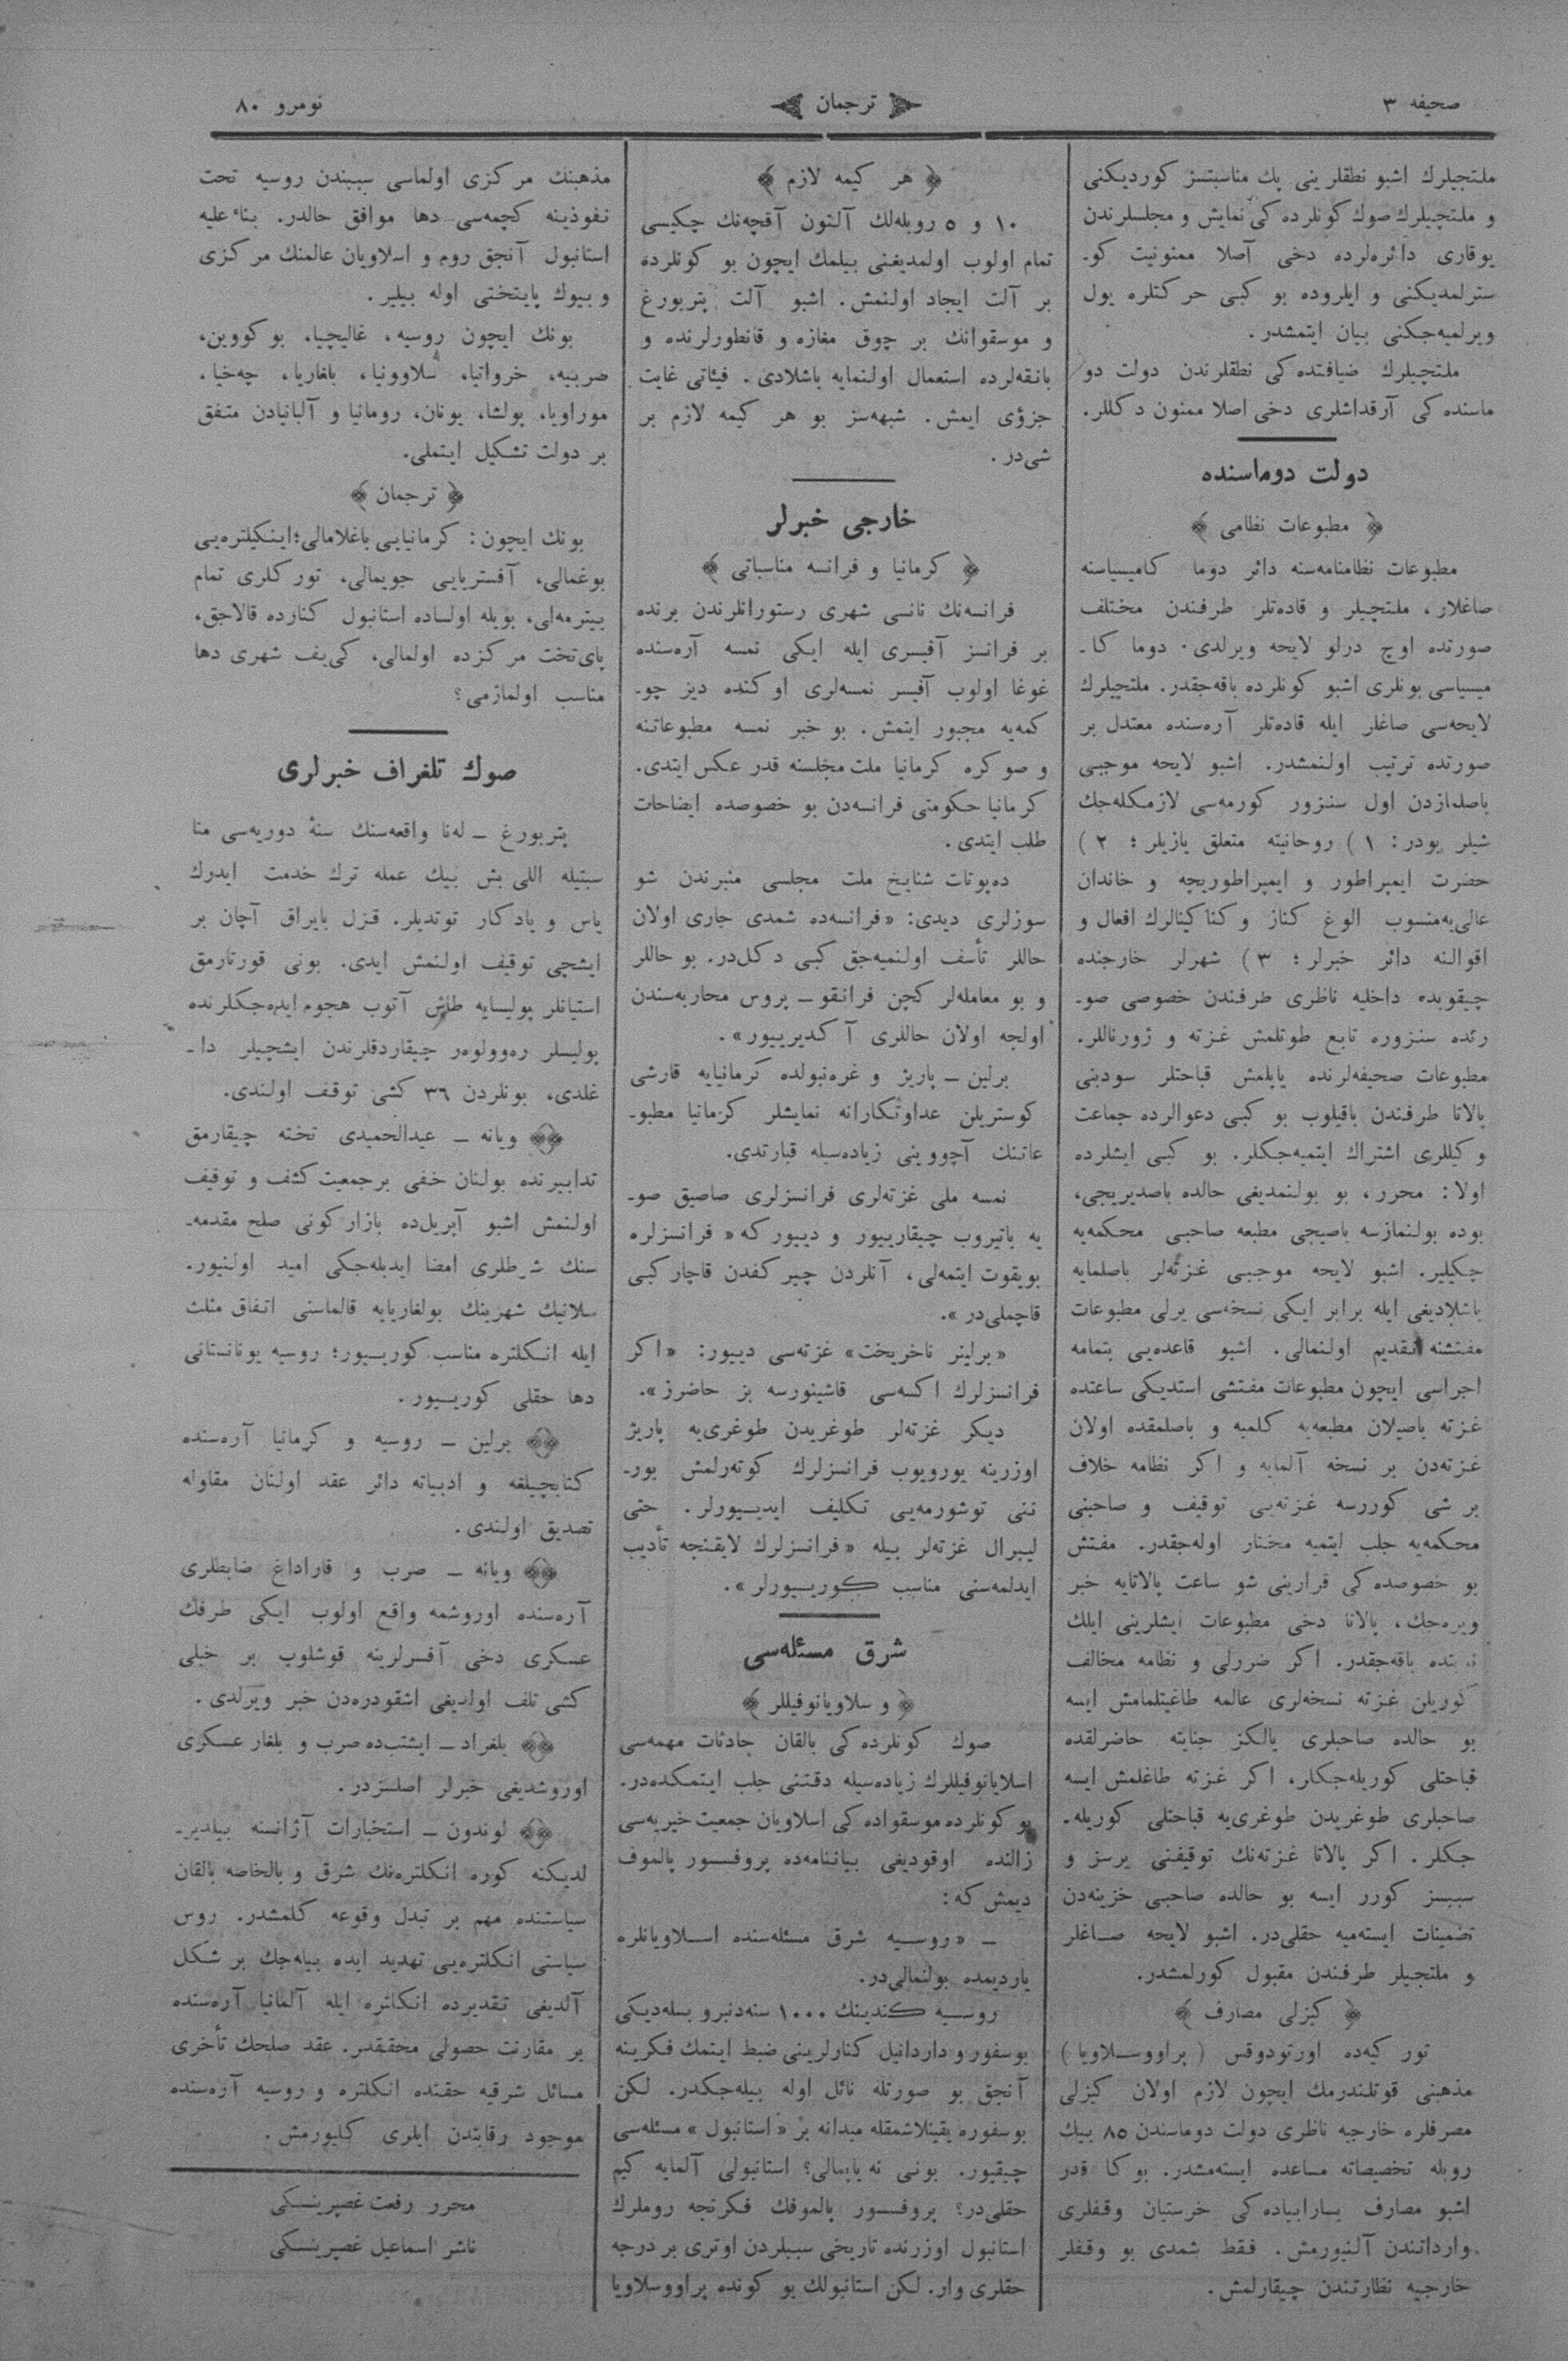 صحیفه ٣
ترجمان
نومرو ٨٠
ملتجیلرك اشبو نطقلرینی پك مناسبتسز كوردیكنی
و ملتچیلرك صوك كونلرده كی نمایش و مجلسلرندن
یوقاری دائره‌لرده دخی آصلا ممنونیت كو-
سترلمدیكنی و ایلروده بو كبی حركتلره یول
ویرلمیه‌جكنی بیان ایتمشدر.
ملتچیلرك ضیافتده‌كی نطقلرندن دولت دو
ماسنده‌كی آرقداشلری دخی اصلا ممنون دكللر.
دولت دوماسنده
﴿ مطبوعات نظامی ﴾
مطبوعات نظامنامه‌سنه دائر دوما كامیسیاسنه
صاغلار، ملتچیلر و قاده‌تلر طرفندن مختلف
صورتده اوچ درلو لایحه ویرلدی. دوما كا-
میسیاسی بونلری اشبو كونلرده باقه‌جقدر. ملتچیلرك
لایحه‌سی صاغلر ایله قاده‌تلر آره‌سنده معتدل بر
صورتده ترتیب اولنمشدر. اشبو لایحه موجبی
باصلمازدن اول سنزور كورمه‌سی لازمكله‌جك
شیلر بودر: ١ ) روحانیته متعلق یازیلر؛ ٢ )
حضرت ایمپراطور و ایمپراطوریچه و خاندان
عالی‌یه‌منسوب الوغ كناز و كناكینالرك افعال و
اقوالنه دائر خبرلر؛ ٣ ) شهرلر خارجنده
چیقوبده داخلیه ناظری طرفندن خصوصی صو-
رتده سنزوره تابع طوتلمش غزته و ژورناللر.
مطبوعات صحیفه‌لرنده یاپلمش قباحتلر سودبنی
پالاتا طرفندن باقیلوب بو كبی دعوالرده جماعت
وكیللری اشتراك ایتمیه‌جكلر. بو كبی ایشلرده
اولا: محرر، بو بولنمدیغی حالده باصدیریجی،
بوده بولنمازسه باصیجی مطبعه صاحبی محكمه‌یه
چكیلیر. اشبو لایحه موجبی غزته‌لر باصلمایه
باشلادیغی ایله برابر ایكی نسخه‌سی یرلی مطبوعات
مفتشنه تقدیم اولنمالی. اشبو قاعده‌یی بتمامه
اجراسی ایچون مطبوعات مفتشی استدیكی ساعتده
غزته باصیلان مطبعه‌یه كلمیه و باصلمقده اولان
غزته‌دن بر نسخه آلمایه و اكر نظامه خلاف
بر شی كوررسه غزته‌یی توقیف و صاحبنی
محكمه‌یه جلب ایتمیه مختار اوله‌جقدر. مفتش
بو خصوصده‌كی قرارینی شو ساعت پالاتایه خبر
ویره‌جك، پالاتا دخی مطبوعات ایشلرینی ایلك
باقه‌جقدر. اكر ضررلی و نظامه مخالف
كوریلن غزته نسخه‌لری عالمه طاغیتلمامش ایسه
بو حالده صاحبلری یالكز جنایته حاضرلقده
قباحتلی كوریله‌جكار، اكر غزته طاغلمش ایسه
صاحبلری طوغریدن طوغری‌یه قباحتلی كوریله-
جكلر. اكر پالاتا غزته‌نك توقیفنی یرسز و
سببسز كورر ایسه بو حالده صاحبی خزینه‌دن
تضمینات ایسته‌میه حقلی‌در. اشبو لایحه صاغلر
و ملتجیلر طرفندن مقبول كورلمشدر.
﴿ كیزلی مصارف ﴾
توركیه‌ده اورتودوقس ( پراووسلاویا )
مذهبنی قوتلندرمك ایچون لازم اولان كیزلی
مصرفلره خارجیه ناظری دولت دوماسندن ٨٥ بیك
روبله تخصیصاته مساعده ایسته‌مشدر. بوكا قدر
اشبو مصارف بسارابیاده‌كی خرستیان وقفلری
وارداتندن آلنیورمش. فقط شمدی بو وقفلر
خارجیه نظارتندن چیقارلمش.
﴿ هر كیمه لازم ﴾
١٠ و ٥ روبله‌لك آلتون آقچه‌نك چكیسی
تمام اولوب اولمدیغنی بیلمك ایچون بو كونلرده
بر آلت ایجاد اولنمش. اشبو آلت پتربورغ
و موسقوانك بر چوق مغازه و قانطورلرنده و
بانقه‌لرده استعمال اولنمایه باشلادی. فیئاتی غایت
جزؤی ایمش. شبهه‌سز بو هر كیمه لازم بر
شی‌در.
خارجی خبرلر
﴿ كرمانیا و فرانسه مناسباتی ﴾
فرانسه‌نك نانسی شهری رستورانلرندن برنده
بر فرانسز آفیسری ایله ایكی نمسه آره‌سنده
غوغا اولوب آفیسر نمسه‌لری اوكنده دیز چو-
كمه‌یه مجبور ایتمش. بو خبر نمسه مطبوعاتنه
و صوكره كرمانیا ملت مجلسنه قدر عكس ایتدی.
كرمانیا حكومتی فرانسه‌دن بو خصوصده ایضاحات
طلب ایتدی.
ده‌پوتات شنایخ ملت مجلسی منبرندن شو
سوزلری دیدی: «فرانسه‌ده شمدی جاری اولان
حاللر تأسف اولنمیه‌جق كبی دكل‌در. بو حاللر
و بو معامله‌لر كچن فرانقو- پروس محاربه‌سندن
اولجه اولان حاللری آكدیرییور».
برلین – پاریژ و غره‌نبولده كرمانیایه قارشی
كوستریلن عداوتكارانه نمایشلر كرمانیا مطبو-
عاتنك آچووینی زیاده‌سیله قبارتدی.
نمسه ملی غزته‌لری فرانسزلری صاصیق صو-
یه باتیروب چیقارییور و دییوركه « فرانسزلره
بویقوت ایتمه‌لی، آنلردن چیركفدن قاچاركبی
قاچملی‌در ».
«برلینر ناخریخت» غزته‌سی دییور: «اكر
فرانسزلرك اكسه‌سی قاشینورسه بز حاضرز».
دیكر غزته‌لر طوغریدن طوغری‌یه پاریژ
اوزرینه یورویوب فرانسزلرك كوته‌رلمش بور-
ننی توشورمه‌یی تكلیف ایدییورلر. حتی
لیبرال غزته‌لر بیله « فرانسزلرك لایقنجه تأدیب
ایدلمه‌سنی مناسب كورییورلر ».
شرق مسئله‌سی
﴿ و سلاویانوفیللر ﴾
صوك كونلرده‌كی بالقان حادثات مهمه‌سی
اسلایانوفیللرك زیاده‌سیله دقتنی جلب ایتمكده‌در.
بو كونلرده موسقواده‌كی اسلاویان جمعیت خیریه‌سی
زالنده اوقودیغی بیاننامه‌ده پروفسور پالموف
دیمش كه:
– «روسیه شرق مسئله‌سنده اسلاویانلره
یاردیمده بولنمالی‌در.
روسیه كندینك ١٠٠٠ سنه‌دنبرو بسله‌دیكی
بوسفور و داردانیل كنارلرینی ضبط ایتمك فكرینه
آنجق بو صورتله نائل اوله بیله‌جكدر. لكن
بوسفوره یقینلاشمقله میدانه بر « استانبول » مسئله‌سی
چیقیور. بونی نه یاپمالی؟ استانبولی آلمایه كیم
حقلی‌در؟ پروفسور پالموفك فكرنجه روملرك
استانبول اوزرنده تاریخی سببلردن اوتری بر درجه
حقلری وار. لكن استانبولك بو كونده پراووسلاویا
مذهبنك مركزی اولماسی سببندن روسیه تحت
نفوذینه كچمه‌سی دها موافق حالدر. بناءً علیه
استانبول آنجق روم و اسلاویان عالمنك مركزی
و بیوك پایتختی اوله بیلیر.
بونك ایچون روسیه، غالیچیا، بوكووین،
صربیه، خرواتیا، سلاوونیا، بلغاریا، چه‌خیا،
موراویا، پولشا، یونان، رومانیا و آلبانیادن متفق
بر دولت تشكیل ایتملی.
﴿ ترجمان ﴾
بونك ایچون: كرمانیایی باغلامالی؛ اینكیلتره‌یی
بوغمالی، آفستریایی جویمالی، توركلری تمام
بیترمه‌لی، بویله اولساده استانبول كنارده قالاجق،
پای‌تخت مركزده اولمالی، كی‌یف شهری دها
مناسب اولمازمی؟
صوك تلغراف خبرلری
پتربورغ – له‌نا واقعه‌سنك سنهٔ دوریه‌سی منا
سبتیله اللی بش بیك عمله ترك خدمت ایدرك
یاس و یادكار توتدیلر. قزل بایراق آچان بر
ایشچی توقیف اولنمش ایدی. بونی قورتارمق
استیانلر پولیسایه طاش آتوب هجوم ایده‌جكلرنده
پولیسلر ره‌وولوه‌ر چیقاردقلرندن ایشچیلر دا-
غلدی، بونلردن ٣٦ كشی توقف اولندی.
ویانه – عبدالحمیدی تخته چیقارمق
تدابیرنده بولنان خفی برجمعیت كشف و توقیف
اولنمش اشبو آپریل‌ده بازار كونی صلح مقدمه-
سنك شرطلری امضا ایدیله‌جكی امید اولنیور.
سلانیك شهرینك بولغاریایه قالماسنی اتفاق مثلث
ایله انكلتره مناسب كوریيور؛ روسیه یونانستانی
دها حقلی كوریيور.
برلین – روسیه و كرمانیا آره‌سنده
كتابچیلغه و ادبیاته دائر عقد اولنان مقاوله
تصدیق اولندی.
ویانه – صرب و قاراداغ ضابطلری
آره‌سنده اوروشمه واقع اولوب ایكی طرفك
عسكری دخی آفسرلرینه قوشلوب بر خیلی
كشی تلف اولدیغی اشقودره‌دن خبر ویرلدی.
بلغراد – ایشتب‌ده صرب و بلغار عسكری
اوروشدیغی خبرلر اصلسزدر.
لوندون – استخبارات آژانسنه بیلدیر-
لدیكنه كوره انكلتره‌نك شرق و بالخاصه بالقان
سیاستنده مهم بر تبدل وقوعه كلمشدر. روس
سیاستی انكلتره‌یی تهدید ایده بیله‌جك بر شكل
آلدیغی تقدیرده انكلتره ایله آلمانیا آره‌سنده
بر مقارنت حصولی محققدر. عقد صلحك تأخری
مسائل شرقیه حقنده انكلتره و روسیه آره‌سنده
موجود رقابتدن ایلری كلیورمش.
محرر رفعت غصپرینسكی
ناشر اسماعیل غصپرینسكی